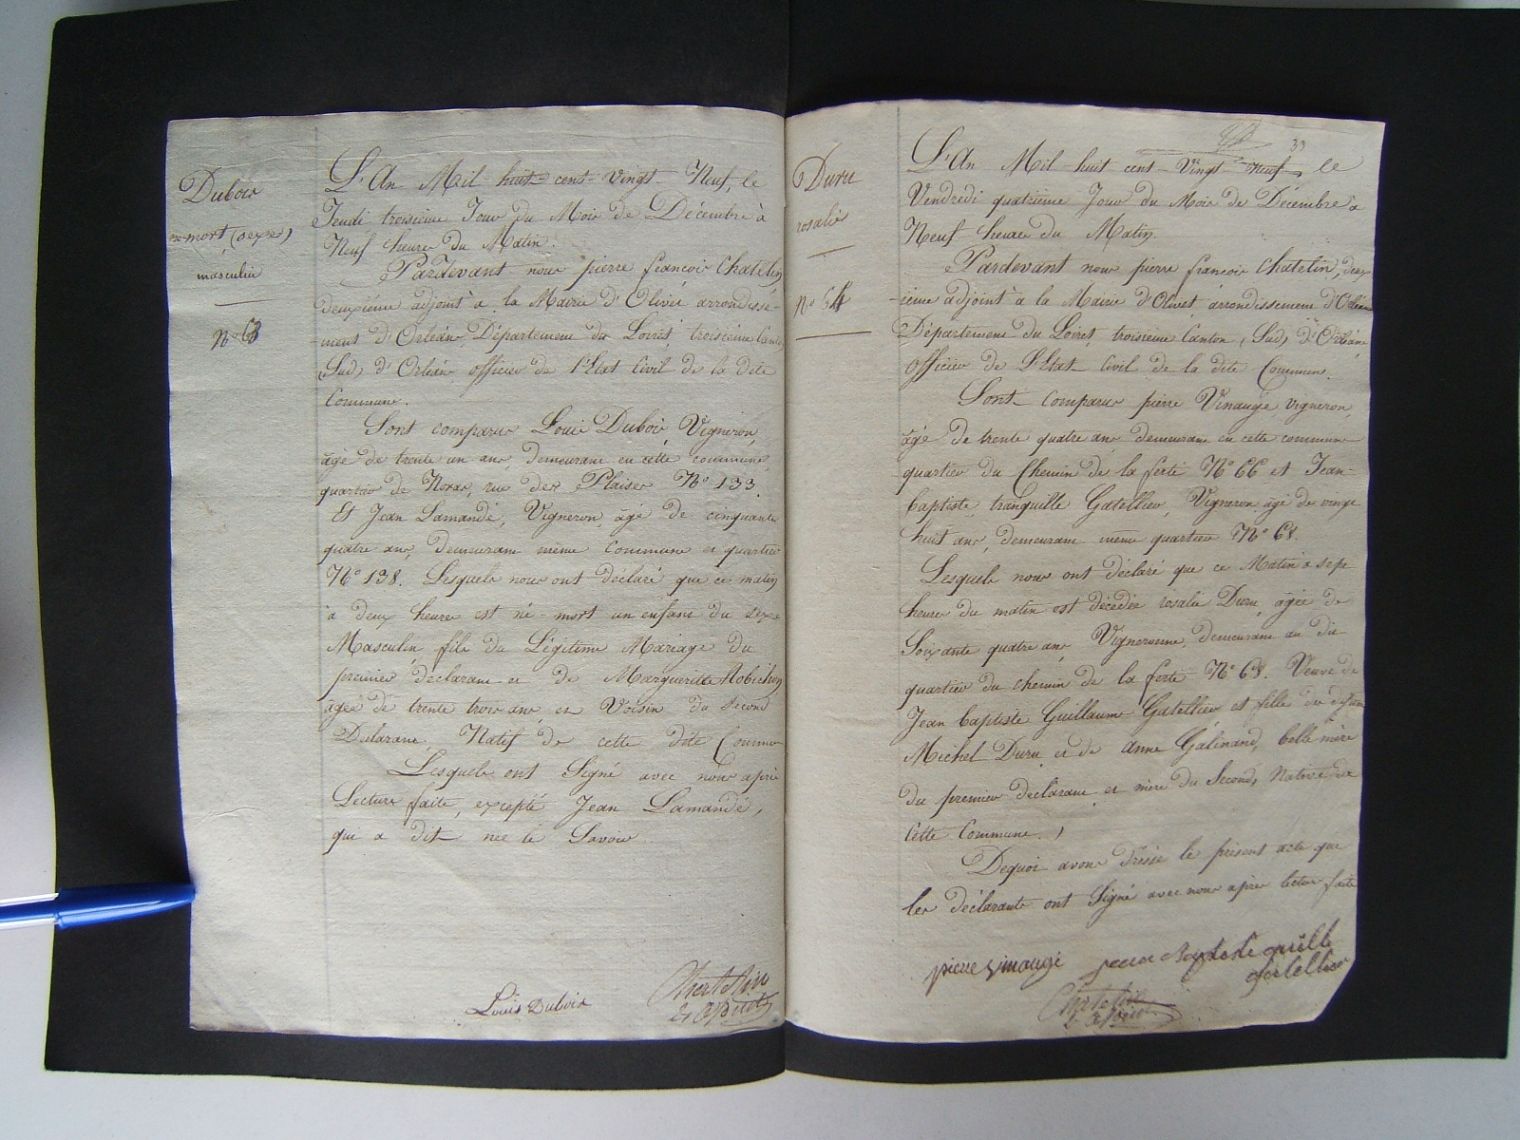 Dubois
né mort (sexe)
masculin
No 63
L'An Mil huit cent Vingt Neuf, le
Jeudi troisieme Jour du Mois de Décembre à
Neuf heures du Matin.
Pardevant nous pierre francois Chatelin
deuxiéme adjoint à la Mairie d'Olivet arrondisse-
-ment d'Orléans Département du Loiret, troisieme Canton
(Sud) d'Orléans officier de l'Etat Civil de la dite
Commune.
Sont comparus Louis Dubois Vigneron,
âgé de trente un ans, demeurant en cette commune,
quartier de Noras, rue des Plaises No 133.
Et Jean Lamandé, Vigneron, âgé de cinquante
quatre ans, demeurant même Commune et quartier
No 138. Lesquels nous ont déclaré que ce matin
à deux heures est né-mort un enfant du sexe
Masculin, fils du Légitime Mariage du
premier déclarant et de Marguerite Robichon
agée de trente trois ans, et Voisin du second
Déclarant Natif de cette dite Commune
Lesquels ont Signé avec nous après
Lecture faite, excepté Jean Lamandé,
qui a dit ne le Savoir
Louis Dubois
Chatelin
adjoint
33
Duru
rosalie
No 64
L'An Mil huit cent Vingt Neuf le
Vendredi quatrième Jour du Mois de Décembre à
Neuf heures du Matin.
Pardevant nous pierre francois Chatelin, deux
-ième adjoint à la Mairie d'Olivet, arrondissement d'Orléans
Département du Loiret, troisieme Canton (Sud) d'Orléans,
Officier de l'Etat Civil de la dite Commune.
Sont comparus pierre Vinauge vigneron,
âgé de trente quatre ans demeurant en cette commune
quartier du Chemin de la ferté No 66 et Jean-
baptiste tranquille Gatellier, Vigneron, âgé de vingt
huit ans, demeurant même quartier No 68.
Lesquels nous ont déclaré que ce Matin à sept
heures du matin est décédée rosalie Duru, âgée de
Soixante quatre ans Vigneronne, demeurant au dit
quartier du chemin de la ferté No 68. Veuve de
Jean baptiste Guillaume Gatellier et fille de défunt
Michel Duru et de anne Galinand, belle mère
du premier déclarant et mère du Second, Native de
Cette Commune.
Dequoi avons dressé le présent acte que
les déclarants ont Signé avec nous après lecture faite
pierre vinauge
gatellier
Chatelin
adjoint